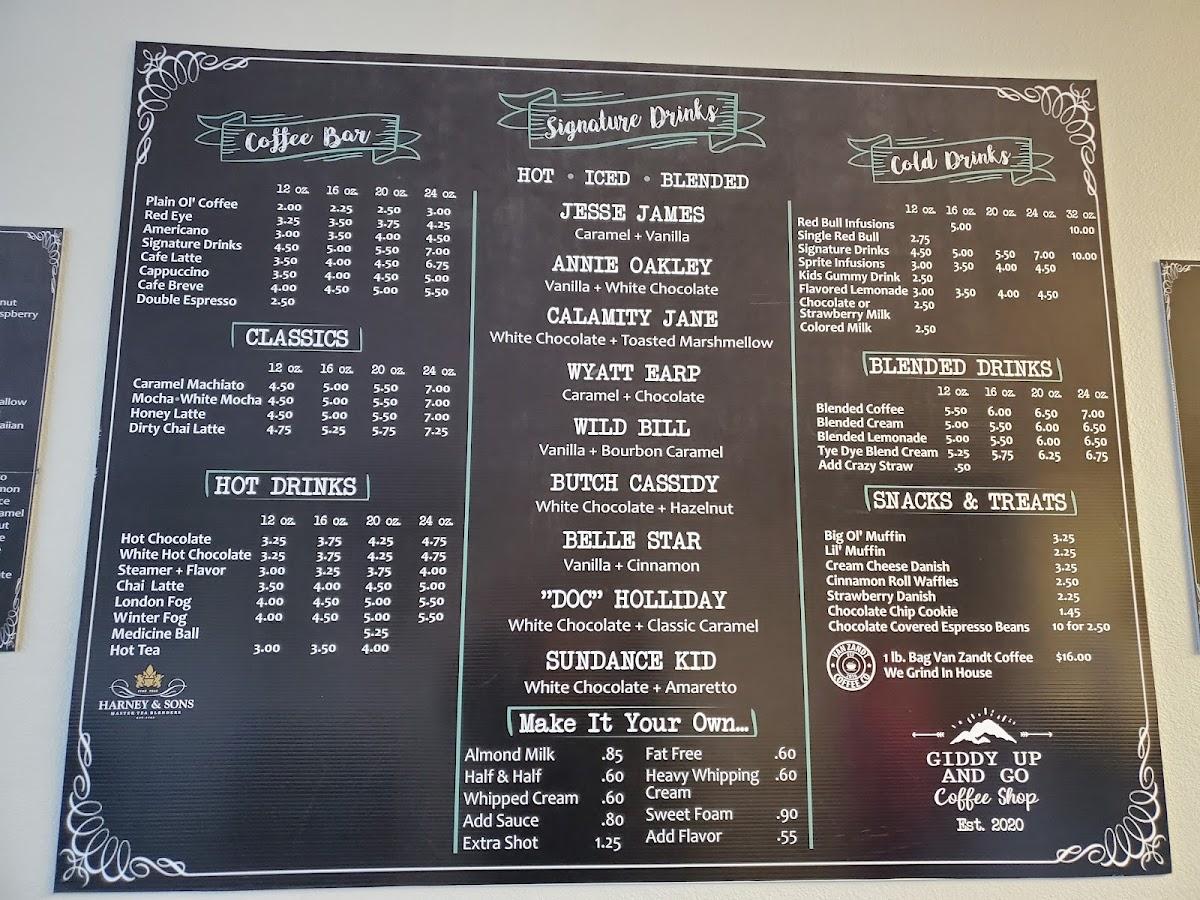 Coffee Bar
12 oz. 16 oz. 20 oz. 24 oz.
Plain Ol' Coffee 2.00 2.25 2.50 3.00
Red Eye 3.25 3.50 3.75 4.25
Americano 3.00 3.50 4.00 4.50
Signature Drinks 4.50 5.00 5.50 7.00
Cafe Latte 3.50 4.00 4.50 6.75
Cappuccino 3.50 4.00 4.50 5.00
Cafe Breve 4.00 4.50 5.00 5.50
Double Espresso 2.50
CLASSICS
12 oz. 16 oz. 20 oz. 24 oz.
Caramel Machiato 4.50 5.00 5.50 7.00
Mocha•White Mocha 4.50 5.00 5.50 7.00
Honey Latte 4.50 5.00 5.50 7.00
Dirty Chai Latte 4.75 5.25 5.75 7.25
HOT DRINKS
12 oz. 16 oz. 20 oz. 24 oz.
Hot Chocolate 3.25 3.75 4.25 4.75
White Hot Chocolate 3.25 3.75 4.25 4.75
Steamer + Flavor 3.00 3.25 3.75 4.00
Chai Latte 3.50 4.00 4.50 5.00
London Fog 4.00 4.50 5.00 5.50
Winter Fog 4.00 4.50 5.00 5.50
Medicine Ball 5.25
Hot Tea 3.00 3.50 4.00
HARNEY & SONS
MASTER TEA BLENDERS
Signature Drinks
HOT • ICED • BLENDED
JESSE JAMES
Caramel + Vanilla
ANNIE OAKLEY
Vanilla + White Chocolate
CALAMITY JANE
White Chocolate + Toasted Marshmellow
WYATT EARP
Caramel + Chocolate
WILD BILL
Vanilla + Bourbon Caramel
BUTCH CASSIDY
White Chocolate + Hazelnut
BELLE STAR
Vanilla + Cinnamon
"DOC" HOLLIDAY
White Chocolate + Classic Caramel
SUNDANCE KID
White Chocolate + Amaretto
Make It Your Own...
Almond Milk .85
Half & Half .60
Whipped Cream .60
Add Sauce .80
Extra Shot 1.25
Fat Free .60
Heavy Whipping .60
Cream
Sweet Foam .90
Add Flavor .55
Cold Drinks
12 oz. 16 oz. 20 oz. 24 oz. 32 oz.
Red Bull Infusions 5.00 10.00
Single Red Bull 2.75
Signature Drinks 4.50 5.00 5.50 7.00 10.00
Sprite Infusions 3.00 3.50 4.00 4.50
Kids Gummy Drink 2.50
Flavored Lemonade 3.00 3.50 4.00 4.50
Chocolate or 2.50
Strawberry Milk
Colored Milk 2.50
BLENDED DRINKS
12 oz. 16 oz. 20 oz. 24 oz.
Blended Coffee 5.50 6.00 6.50 7.00
Blended Cream 5.00 5.50 6.00 6.50
Blended Lemonade 5.00 5.50 6.00 6.50
Tye Dye Blend Cream 5.25 5.75 6.25 6.75
Add Crazy Straw .50
SNACKS & TREATS
Big Ol' Muffin 3.25
Lil' Muffin 2.25
Cream Cheese Danish 3.25
Cinnamon Roll Waffles 2.50
Strawberry Danish 2.25
Chocolate Chip Cookie 1.45
Chocolate Covered Espresso Beans 10 for 2.50
VAN ZANDT
COFFEE CO
1 lb. Bag Van Zandt Coffee $16.00
We Grind In House
GIDDY UP
AND GO
Coffee Shop
Est. 2020